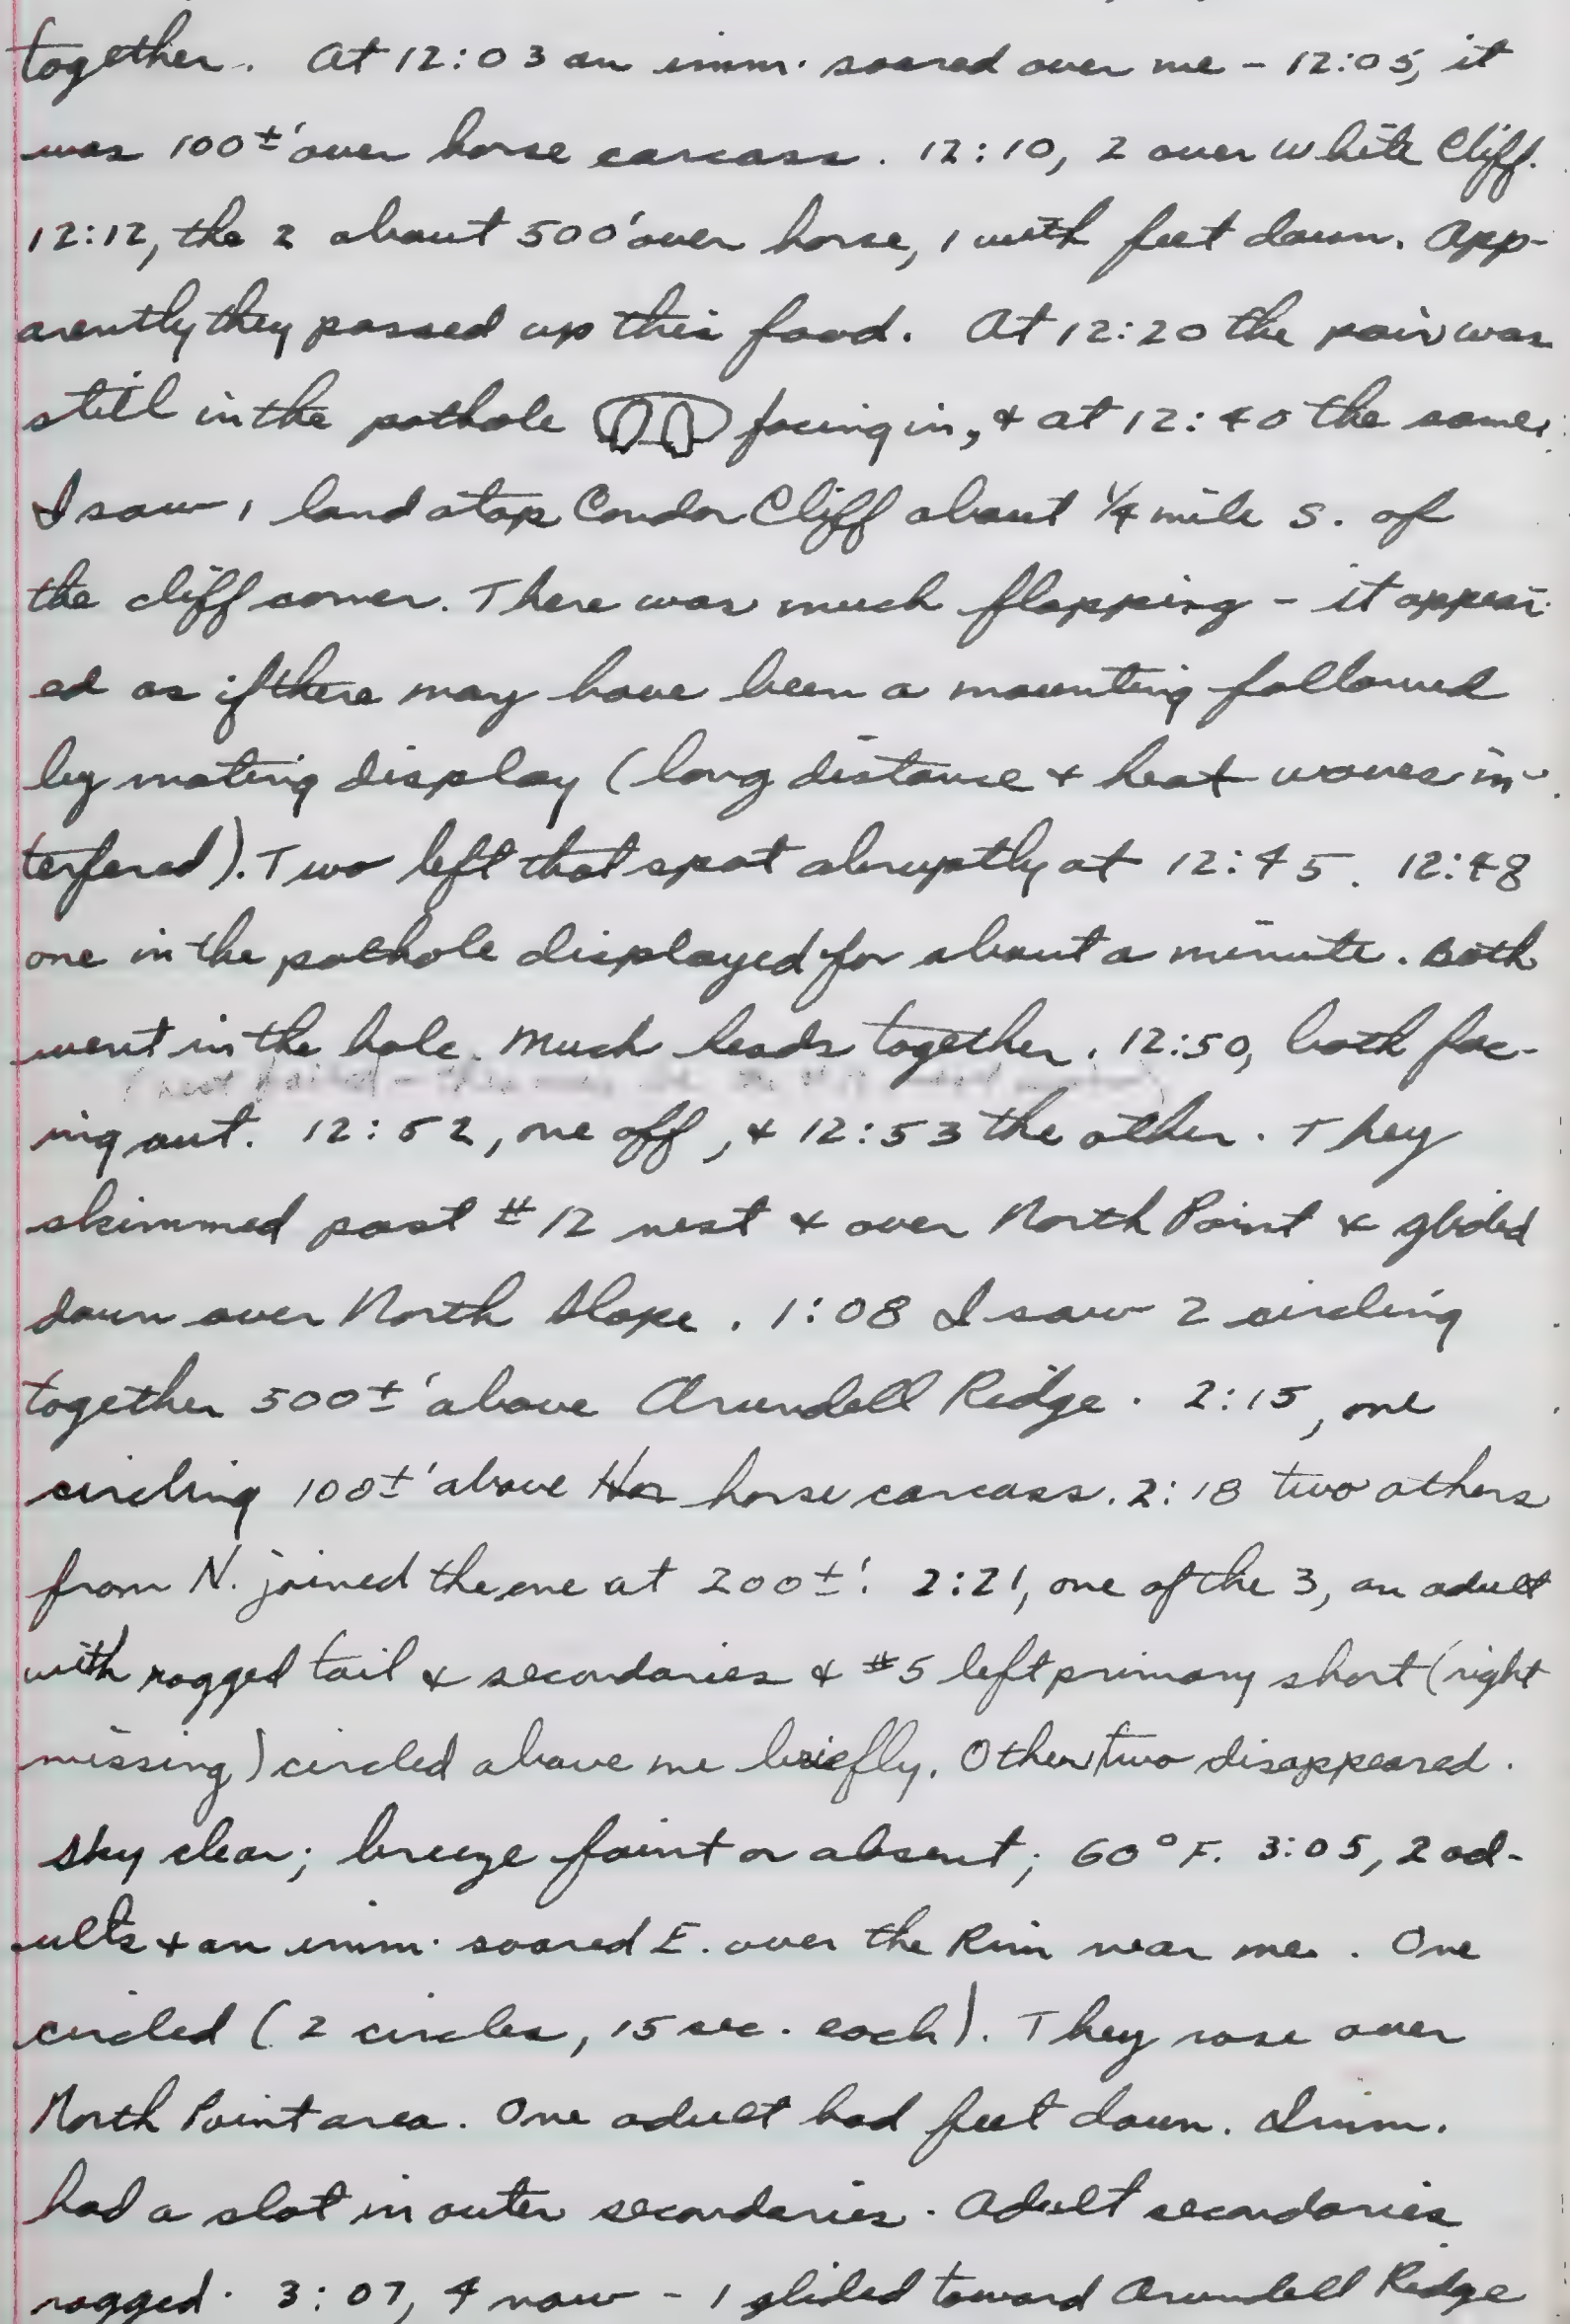 together. At 12:03 an imm. soared over me – 12:05, it
was 100±' over horse carcass. 12:10, 2 over White Cliff.
12:12, the 2 about 500' over horse, 1 with feet down. App-
arently they passed up this food. At 12:20 the pair was
still in the pothole facing in, & at 12:40 the same.
I saw 1 land atop Condor Cliff about 1/4 mile S. of
the cliff corner. There was much flapping – it appear-
ed as if there may have been a mounting followed
by mating display (long distance & heat waves in-
terfered). Two left that spot abruptly at 12:45. 12:48
one in the pothole displayed for about a minute. Both
went in the hole. Much heads together. 12:50, both fac-
ing out. 12:52, one off, & 12:53 the other. They
skimmed past #12 nest & over North Point & glided
down over North Slope. 1:08 I saw 2 circling
together 500±' above Arundell Ridge. 2:15, one
circling 100±' above Hor horse carcass. 2:18 two others
from N. joined the one at 200±'. 2:21, one of the 3, an adult
with ragged tail & secondaries & #5 left primary short (right
missing) circled above me briefly. Other two disappeared.
Sky clear; breeze faint or absent; 60°F. 3:05, 2 ad-
ults & an imm. soared E. over the Rim near me. One
circled (2 circles, 15 sec. each). They rose over
North Point area. One adult had feet down. Imm.
had a slot in outer secondaries. Adult secondaries
ragged. 3:07, 4 now – 1 glided toward Arundell Ridge